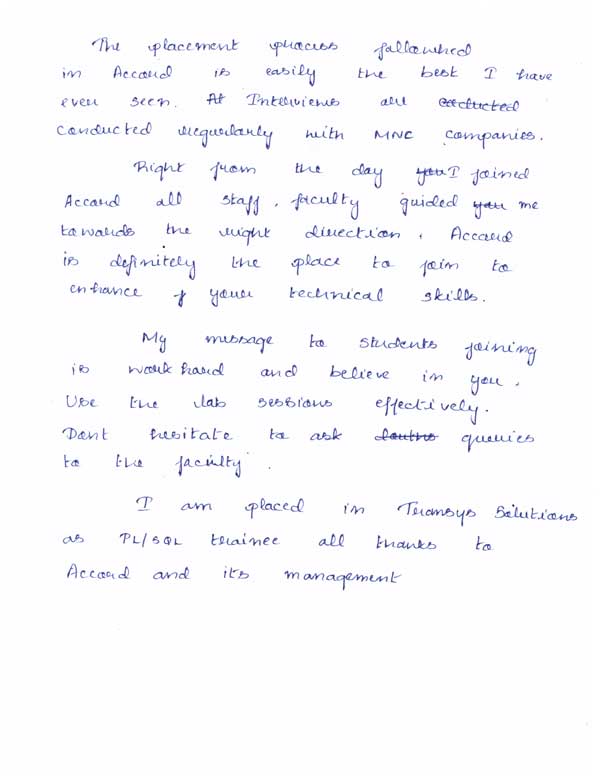 The placement process followed
in Accord is easily the best I have
ever seen. At Interviews are coducted
conducted regularly with MNC companies.
Right from the day you I joined
Accord all staff, faculty guided you me
towards the right direction. Accord
is definitely the place to join to
enhance your technical skills.
My message to students joining
is work hard and believe in you.
Use the lab sessions effectively.
Dont hesitate to ask doubts queries
to the faculty.
I am placed in Transys Solutions
as PL/SQL trainee all thanks to
Accord and its management